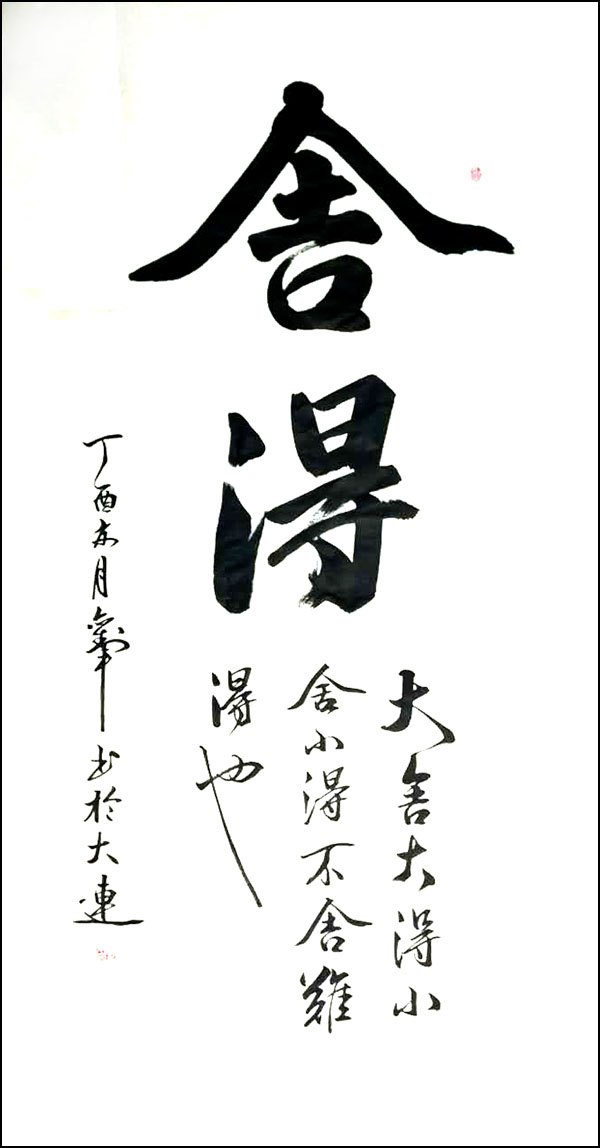 舍
得
大舍大得小
舍小得不舍難
得也
丁酉 月 书於大連